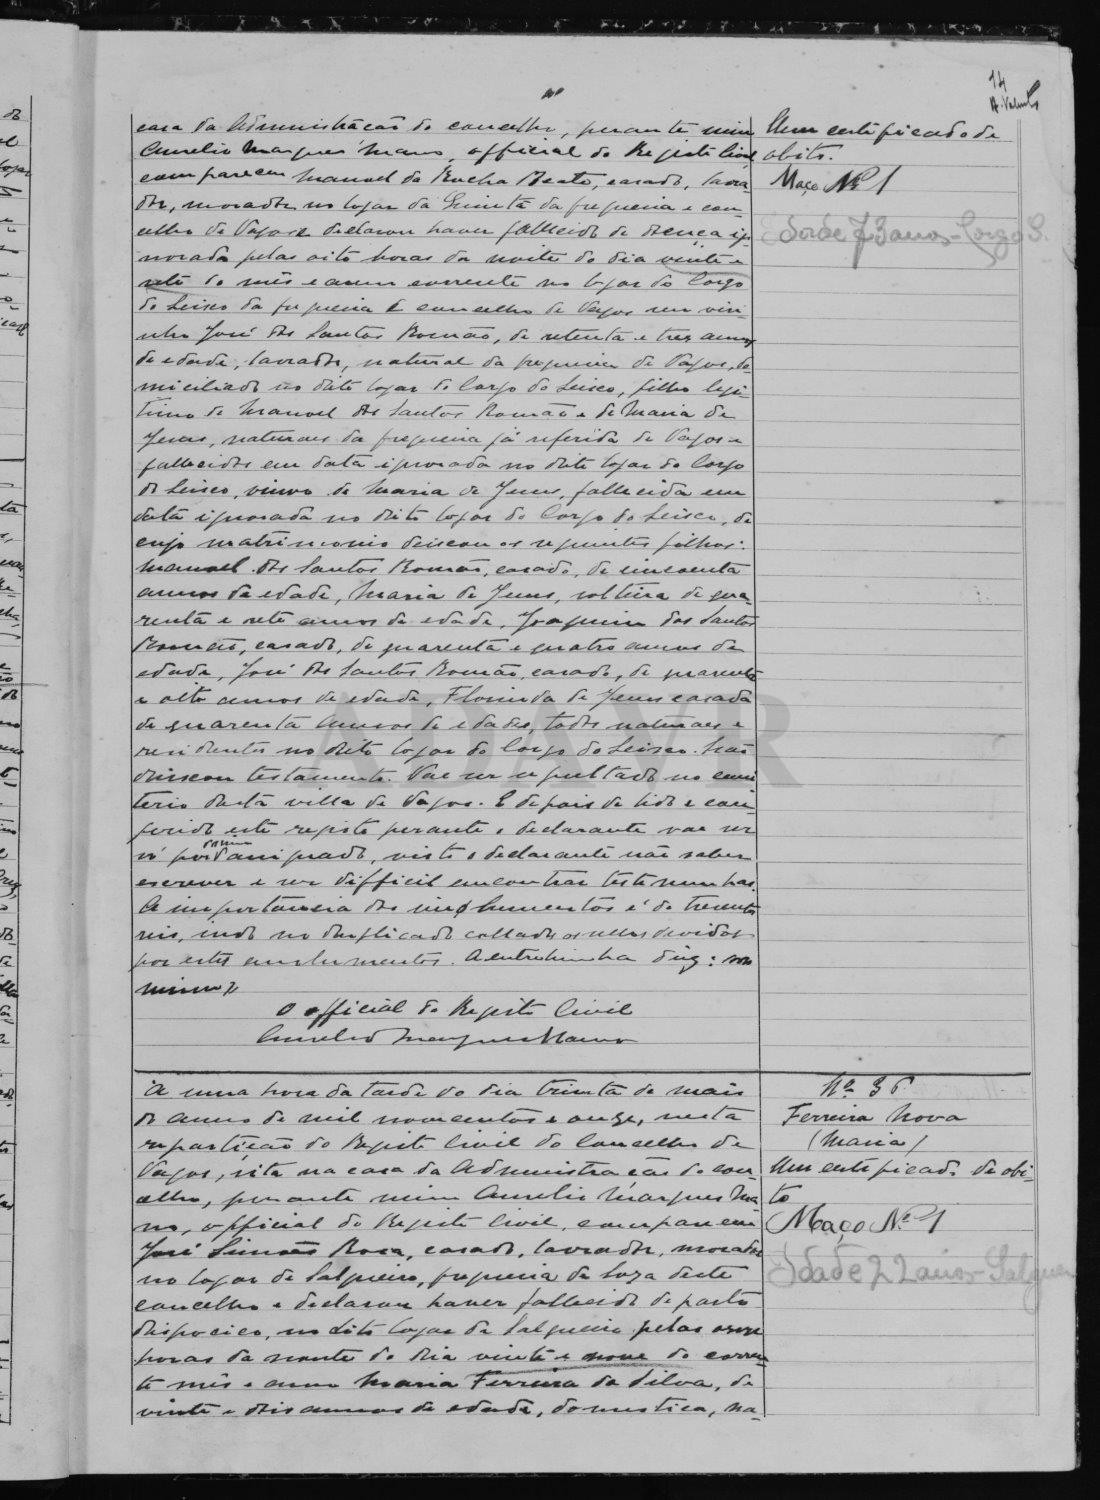 14
A. Valente
casa da Administração do concelho, perante mim
Aurelio Marques Mano, official do Registo Civil
compareceu Manoel da Rocha Beato, casado, lavra-
dor, morador no logar da Quinta da freguesia e con-
celho de Vagos e declarou haver fallecido de doença ig-
norada pelas oito horas da noite do dia vinte e
sete do mês e anno corrente no logar do Corgo
do Seixo da freguesia e concelho de Vagos seu visi-
nho José dos Santos Romão, de setenta e tres annos
de edade, lavrador, natural da freguesia de Vagos, do-
miciliado no dito logar do Corgo do Seixo, filho legi-
timo de Manoel dos Santos Romão e de Maria de
Jesus, naturaes da freguesia já referida de Vagos e
fallecidos em data ignorada no dito logar do Corgo
do Seixo, viuvo de Maria de Jesus, fallecida em
data ignorada no dito logar do Corgo do Seixo, de
cujo matrimonio deixou os seguintes filhos:
Manoel dos Santos Romão, casado, de cincoenta
annos de edade, Maria de Jesus, solteira de qua-
renta e sete annos de edade, Joaquim dos Santos
Romão, casado, de quarenta e quatro annos de
edade, José dos Santos Romão, casado, de quarenta
e oito annos de edade, Florinda de Jesus casada
de quarenta annos de edade, todos naturaes e
residentes no dito logar do Corgo do Seixo. Não
deixou testamento. Vae ser sepultado no cemi-
terio desta villa de Vagos. E depois de lido e con-
ferido este registo perante o declarante vae ser
só por mim assignado, visto o declarante não saber
escrever e ser difficil encontrar testemunhas.
A importancia dos emolumentos é de trezentos
reis, indo no duplicado collados os sellos devidos
por estes emolumentos. A entrelinha diz: por
mim
O official do Registo Civil
Aurelio Marques Mano
Um certificado de
obito.
Maço Nº 1
Edade 73 annos - Corgo S.
A uma hora da tarde do dia trinta de maio
do anno de mil novecentos e onze, nesta
repartição do Registo Civil do Concelho de
Vagos, sita na casa da Administração do con-
celho, perante mim Aurelio Marques Ma-
no, official do Registo Civil, compareceu
José Simões Rosa, casado, lavrador, morador
no logar de Salgueiro, freguesia de Soza deste
concelho e declarou haver fallecido de parto
no dito logar de Salgueiro pelas onze
horas da noute do dia vinte e nove do corren-
te mês e anno Maria Ferreira da Silva, de
vinte e dois annos de edade, domestica, na-
Nº 36
Ferreira Nova
(Maria)
Um certificado de obi-
to
Maço Nº 1
Edade 22 anos - Salgueiro
ADAVR